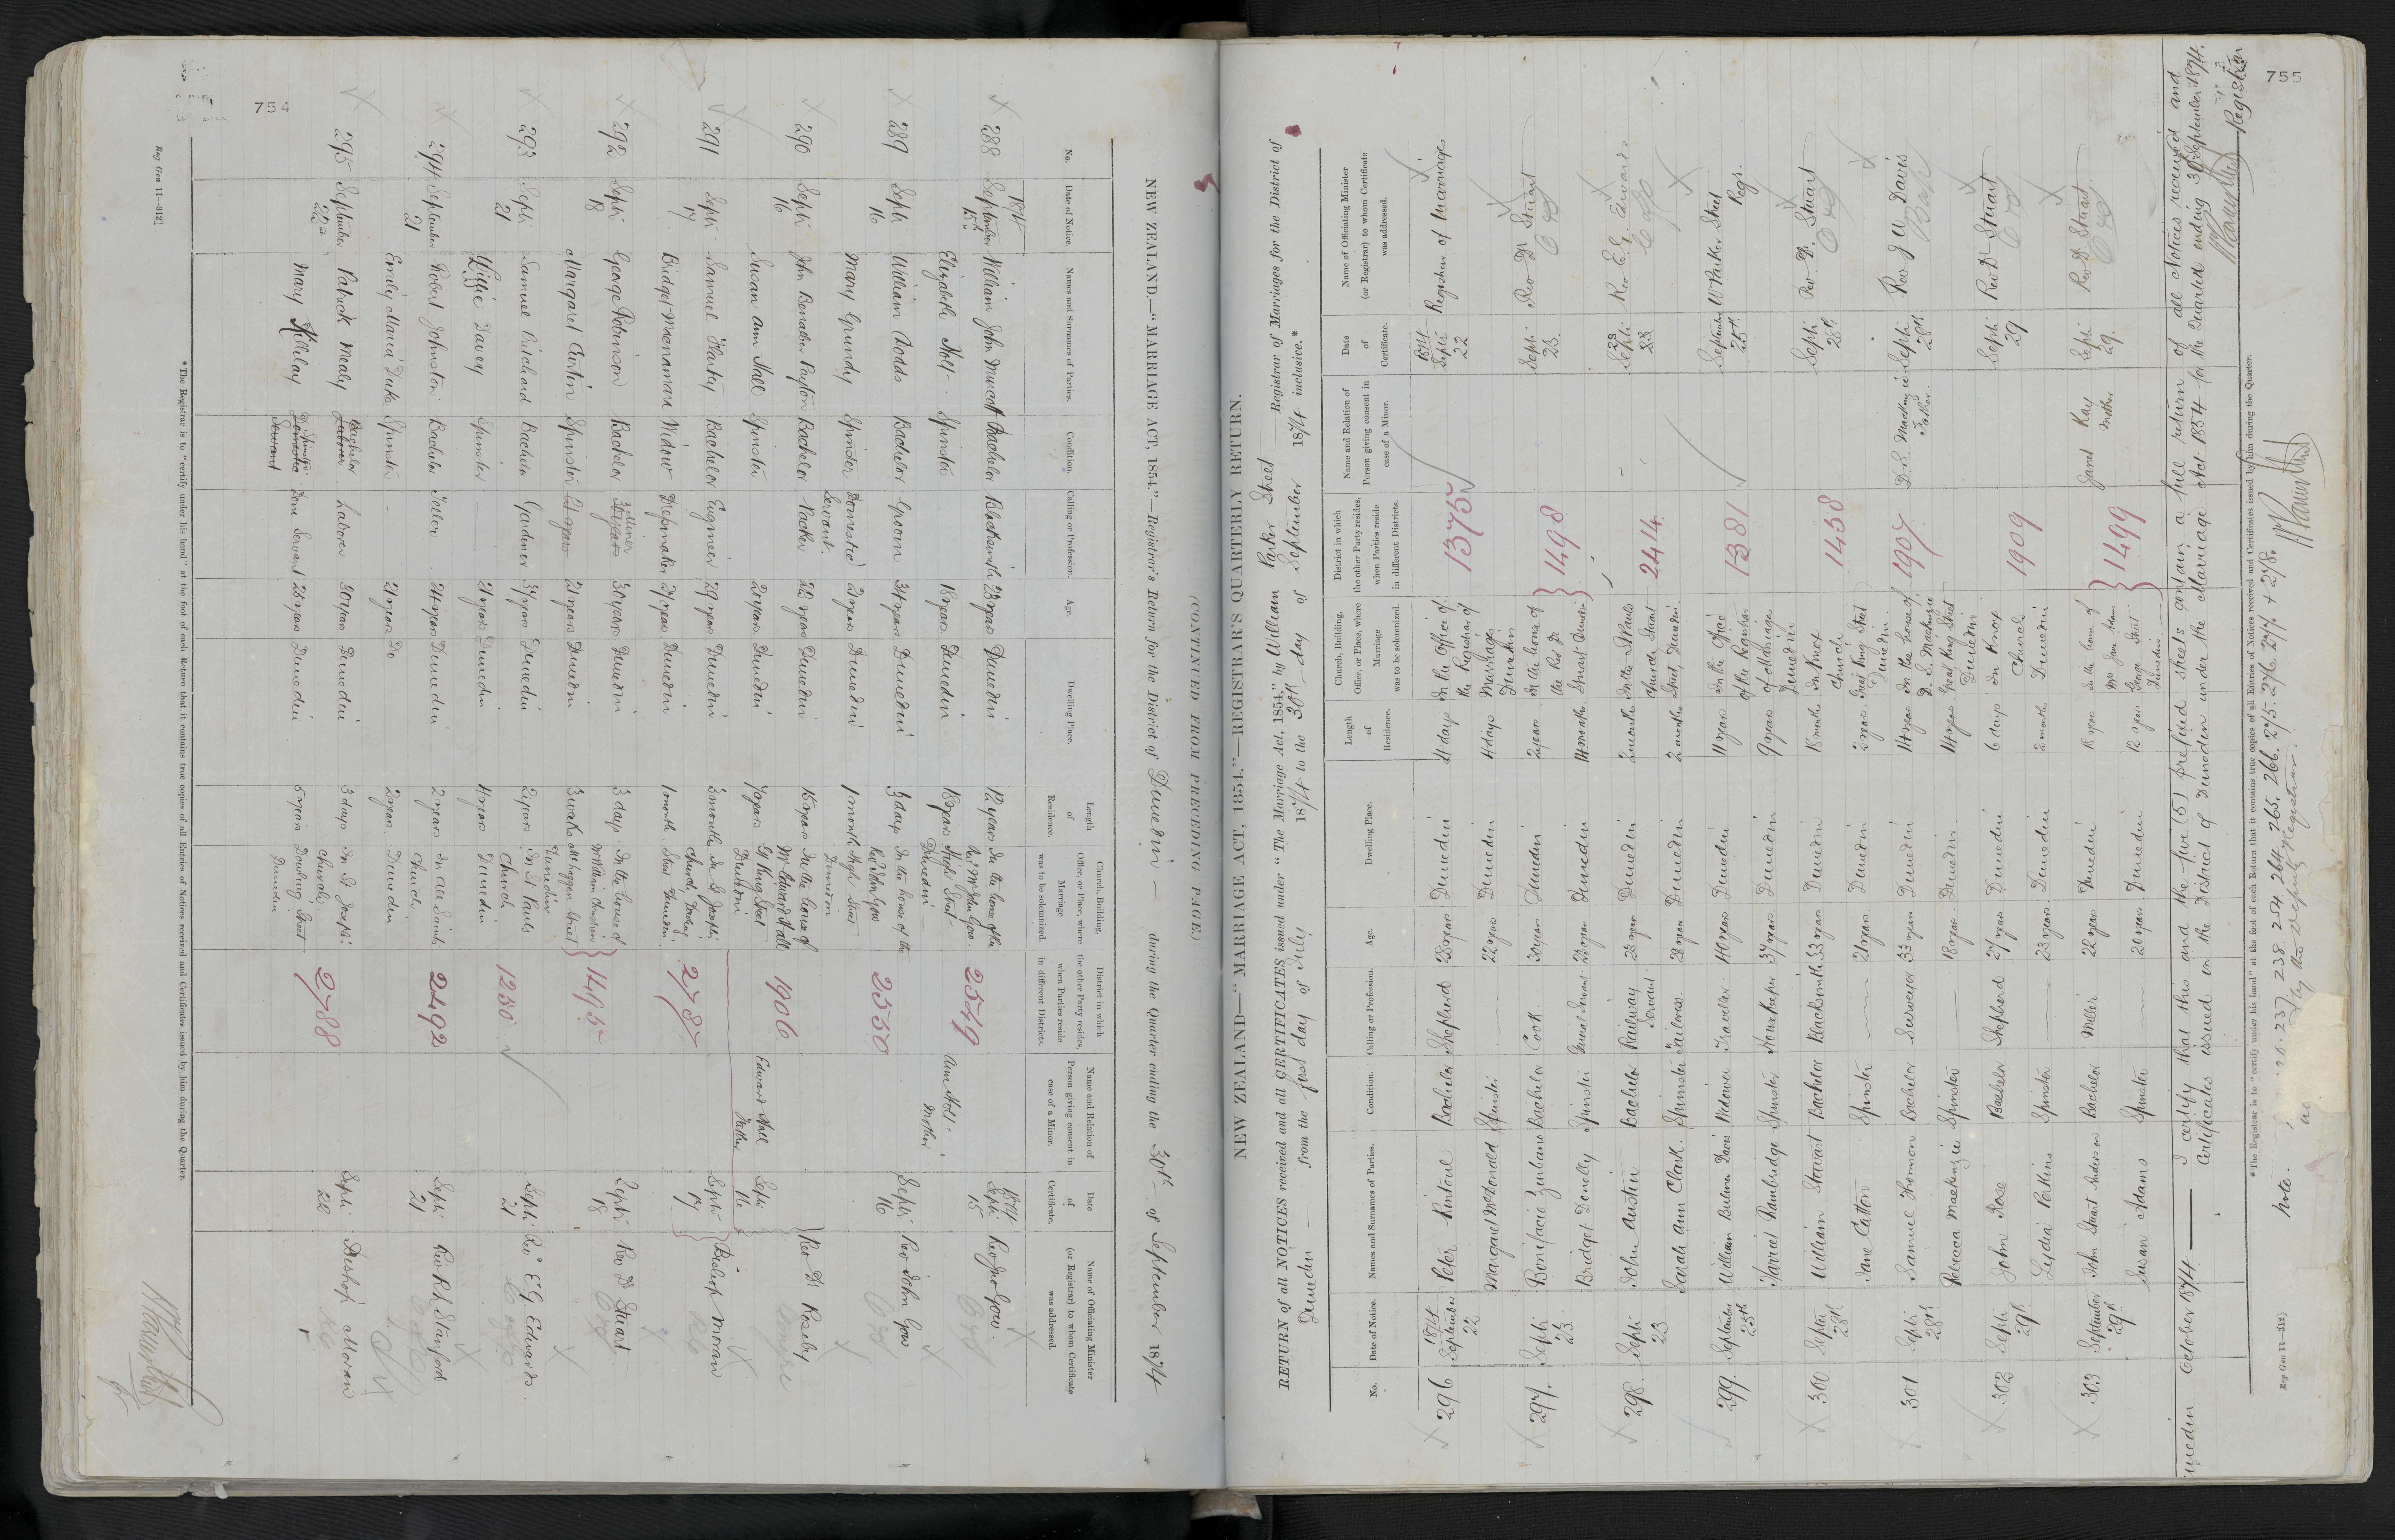 754
(CONTINUED FROM PRECEDING PAGE.)
NEW ZEALAND.—"MARRIAGE ACT, 1854."—Registrar's Return for the District of Dunedin — during the Quarter ending the 30th of September 1874
No. Date of Notice. Names and Surnames of Parties. Condition. Calling or Profession. Age. Dwelling Place. Length of Residence. Church, Building, Office, or Place, where Marriage was to be solemnized. District in which the other Party resides, when Parties reside in different Districts. Name and Relation of Person giving consent in case of a Minor. Date of Certificate. Name of Officiating Minister (or Registrar) to whom Certificate was addressed.
288 1874 September 15th William John Murcott Bachelor Blacksmith 23 years Dunedin 12 years In the house of the Revd Mr John Gow 2549 1874 Septr 15 Rev Jno Gow.
Elizabeth Holt Spinster 18 years Dunedin 18 years High Street Dunedin — Ann Holt Mother
289 Septr 16 William Dodds Bachelor Groom 34 years Dunedin 3 days In the house of the Rev John Gow 2550 Septr 16 Rev John Gow
Mary Grundy Spinster Domestic Servant. 21 years Dunedin 1 month High Street Dunedin
290 Septr 16 John Bonaber Payton Bachelor Packer 22 years Dunedin 15 years In the house of Mr Edward Hall 1906 Edward Hall Father Septr 16 Rev Dr Roseby
Susan Ann Hall Spinster 20 years Dunedin 7 years Gt King Street Dunedin
291 Septr 17 Samuel Hartey Bachelor Engineer 29 years Dunedin 3 months In St Josephs Church, Dowling 2787 Septr 17 Bishop Moran
Bridget Menamara Widow Dressmaker 27 years Dunedin 1 month Street Dunedin.
292 Septr 18 George Robinson Bachelor Settler 30 years Dunedin 3 days In the house of William 1495 Septr 18 Rev Dr Stuart.
Margaret Curtin Spinster 21 years Dunedin 3 weeks Maclaggan Street Dunedin
293 Septr 21 Samuel Pritchard Bachelor Gardener 34 years Dunedin 2 years In St Pauls Church 1250 Septr 21 Rev E.G. Edwards.
Lizzie Davey Spinster — 21 years Dunedin 4 years Dunedin
294 September 21 Robert Johnston Bachelor Tailor 24 years Dunedin 2 years In All Saints Church 2492 Septr 21 Rev R.L. Stanford
Emily Maria Duke Spinster — 21 years Do 2 years Dunedin
295 September 22 Patrick Mealy Bachelor Laborer 30 years Dunedin 3 days In St Josephs Church 2788 Septr 22 Bishop Moran
Mary Killilay Spinster Dom: Servant 25 years Dunedin 5 years Dowling Street Dunedin
*The Registrar is to "certify under his hand" at the foot of each Return that it contains true copies of all Entries of Notices received and Certificates issued by him during the Quarter.
Reg Gen 11—312]
755
NEW ZEALAND—"MARRIAGE ACT, 1854."—REGISTRAR'S QUARTERLY RETURN.
RETURN of all NOTICES received and all CERTIFICATES issued under "The Marriage Act, 1854," by William Parker Street Registrar of Marriages for the District of
Dunedin — from the first day of July 1874 to the 30th day of September 1874 inclusive.*
No. Date of Notice. Names and Surnames of Parties. Condition. Calling or Profession. Age. Dwelling Place. Length of Residence. Church, Building, Office, or Place, where Marriage was to be solemnized. District in which the other Party resides, when Parties reside in different Districts. Name and Relation of Person giving consent in case of a Minor. Date of Certificate. Name of Officiating Minister (or Registrar) to whom Certificate was addressed.
296 1874 September 22 Peter Rintoul Bachelor Shepherd 28 years Dunedin 4 days In the Office of the Registrar of 1375 1874 Septr 22 Registrar of Marriages
Margaret McDonald Spinster — 22 years Dunedin 4 days Marriages Dunedin
297. Septr 23. Bonifacio Zunbano Bachelor Cook 30 years Dunedin 2 years In the house of the Rev Dr 1498 Septr 23. Rev Dr Stuart
Bridget Donelly Spinster General Servant 23 years Dunedin 14 months Stuart Dunedin
298. Septr 23 John Austin Bachelor Railway Servant 23 years Dunedin 2 months In the St Pauls Church Stuart 2414 Septr 23 Rev E. G. Edwards
Sarah Ann Clark. Spinster Tailoress. 23 years Dunedin 2 months Street, Dunedin
299. September 25th William Bulmer Davis Widower Traveller. 40 years Dunedin 11 years In the Office of the Registrar 1381 September 25th W Parker Street Regr.
Harriet Rambridge Spinster Housekeeper 37 years. Dunedin 9 years of Marriages Dunedin
300 Septr 28th William Stewart Bachelor Blacksmith 33 years Dunedin 18 months In Knox Church 1458 Septr 28th Rev Dr. Stuart
Jane Catton Spinster — 21 years Dunedin 2 years. Great King Street Dunedin
301 Septr 28th Samuel Thomson Bachelor Surveyor 33 years Dunedin 14 years In the house of D. S. Mackenzie 1907 D.S. Mackenzie Father. Septr 28th Rev J. W. Davis
Rebecca Mackenzie Spinster — 18 years Dunedin. 14 years Great King Street Dunedin
302 Septr 29th John Rose Bachelor Shepherd 27 years Dunedin 6 days In Knox Church 1909 Septr 29 Rev Dr Stuart
Lydia Perkins Spinster — 23 years Dunedin 2 months Dunedin
303 September 29th John Stuart Anderson Bachelor Miller 22 years Dunedin 18 years In the house of Mrs Jane Adams 1499 Janet Kay Mother Septr 29. Rev Dr Stuart.
Susan Adams Spinster — 20 years Dunedin 12 years George Street Dunedin
Dunedin October 1874. — I certify that this and the five (5) prefixed sheets contain a full return of all Notices received and
Certificates issued in the District of Dunedin under the Marriage Act 1854 for the Quarter ending 30th September 1874.
Registrar
*The Registrar is to "certify under his hand" at the foot of each Return that it contains true copies of all Entries of Notices received and Certificates issued by him during the Quarter.
Note. 237. 238. 254. 264. 265. 266. 275. 276. 277 & 278.
by the Deputy Registrar.
Reg Gen 11—312]